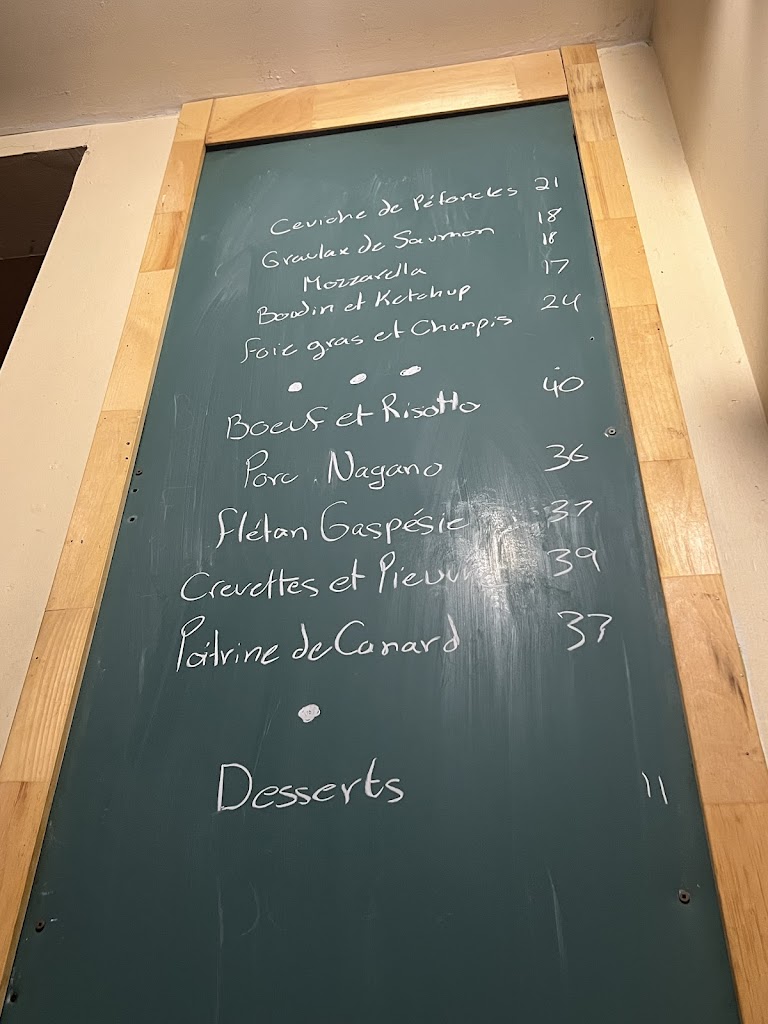 Ceviche de Pétoncles 21
Gravlax de Saumon 18
Mozzarella 18
Boudin et Ketchup 17
Foie gras et Champis 24
Boeuf et Risotto 40
Porc Nagano 36
Flétan Gaspésie 37
Crevettes et Pieuvre 39
Poitrine de Canard 37
Desserts 11